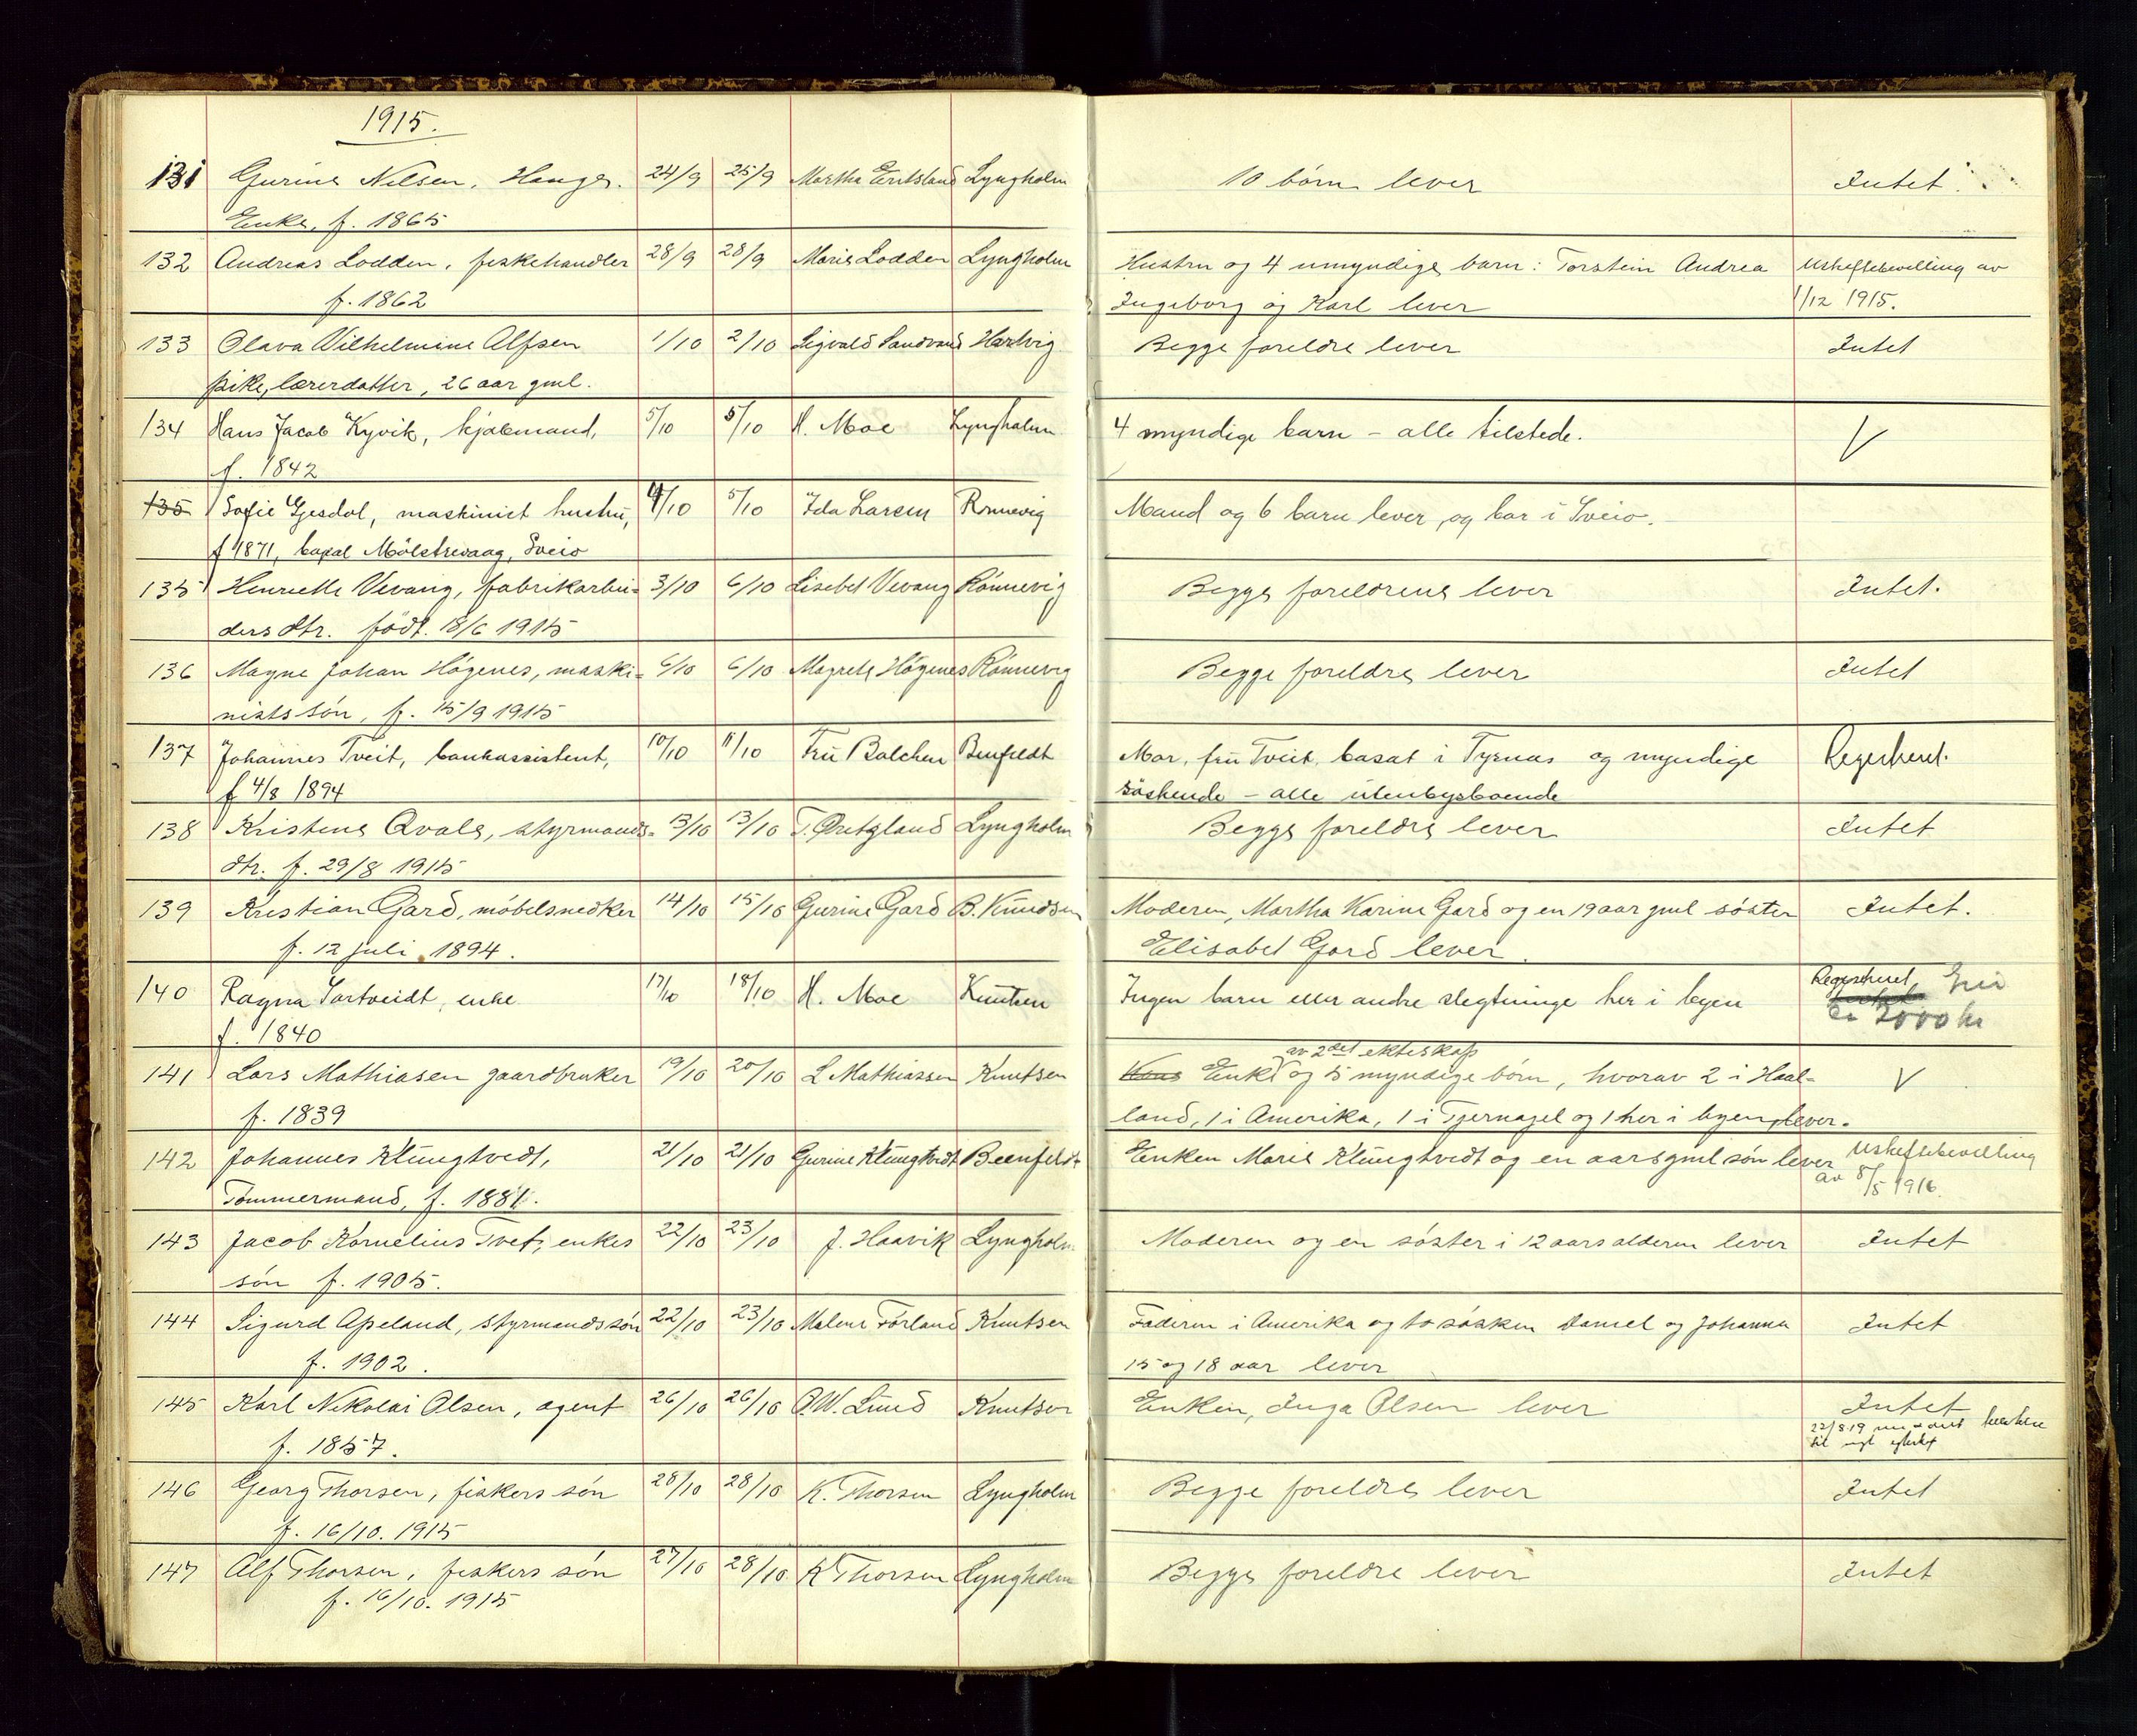 1915.
131 Gurine Nilsen, Hauge. 24/9 25/9 Martha Eritsland Lyngholm 10 børn lever Intet.
Enke, f. 1865
132 Andreas Lodden, fiskehandler 28/9 28/9 Marie Lodden Lyngholm Hustru og 4 umyndige barn: Torstein Andrea Uskiftebevilling av
f. 1862 Ingeborg og Karl lever 1/12 1915.
133 Olava Vilhelmine Alfsen 1/10 2/10 Sigvald Sandvand Hartvig Begge foreldre lever Intet
pike, lærerdatter, 26 aar gml.
134 Hans Jacob Kyvik, kjøbmand, 5/10 5/10 H. Moe Lyngholm 4 myndige barn - alle tilstede. V
f. 1842
135 Sofie Gjesdal, maskinist hustru, 4/10 5/10 Ida Larsen Rønnevig Mand og 6 barn lever, og bor i Sveio.
f 1871, bopal Mølstrevaag, Sveio
135 Henriette Vevang, fabrikarbei= 3/10 6/10 Lisebet Vevang Rønnevig Begge foreldrene lever Intet.
ders dtr. født. 18/6 1915
136 Magne Johan Høgenes, maski= 6/10 6/10 Magrete Høgenes Rønnevig Begge foreldre lever Intet
nists søn, f. 15/9 1915
137 Johannes Tveit, bankassistent, 10/10 11/10 Fru Balchen Benfeldt Mor, fru Tveit, bosat i Tysnes og myndige Registreret.
f 4/8 1894 søskende - alle utenbysboende
138 Kristine Qvale, styrmands= 13/10 13/10 T. Øretgland Lyngholm Begge foreldre lever Intet
dtr. f. 29/8 1915
139 Kristian Gard, møbelsnedker 14/10 15/10 Gurine Gard B. Knudsen Moderen, Martha Karine Gard og en 19 aar gml søster Intet.
f. 12 juli 1894. Elisabet Gard lever.
140 Ragna Tartveidt, enke 17/10 18/10 H. Moe Knutsen Ingen barn eller andre slegtninge her i byen Registreret,
f. 1840 ca 2000 kr
av 2det ekteskap
141 Lars Mathiasen gaardbruker 19/10 20/10 L Mathiassen Knutsen Enke og 5 myndige børn, hvorav 2 i Haal= V
f. 1839 land, 1 i Amerika, 1 i Tjernagel og 1 her i byen lever.
142 Johannes Klungtvedt, 21/10 21/10 Gurine Klungtvedt Beenfeldt Enken Marie Klungtvedt og en aarsgml søn lever Uskiftebevilling
Tømmermand, f. 1881. av 8/5 1916.
143 Jacob Kornelius Tvet, enkes 22/10 23/10 J. Haavik Lyngholm Moderen og en søster i 12 aars alderen lever Intet
søn f. 1905.
144 Sigurd Apeland, styrmands søn 22/10 23/10 Malene Førland Knutsen Faderen i Amerika og to søsken Daniel og Johanna Intet
f. 1902. 15 og 18 aar lever
145 Karl Nikolai Olsen, agent 26/10 26/10 O.W. Lund Knutsen Enken, Inga Olsen lever Intet
f. 1857. 22/8 19
146 Georg Thorsen, fiskers søn 28/10 28/10 K. Thorsen Lyngholm Begge foreldre lever Intet
f. 16/10. 1915
147 Alf Thorsen, fiskers søn 27/10 28/10 K Thorsen Lyngholm Begge foreldre lever Intet
f. 16/10. 1915